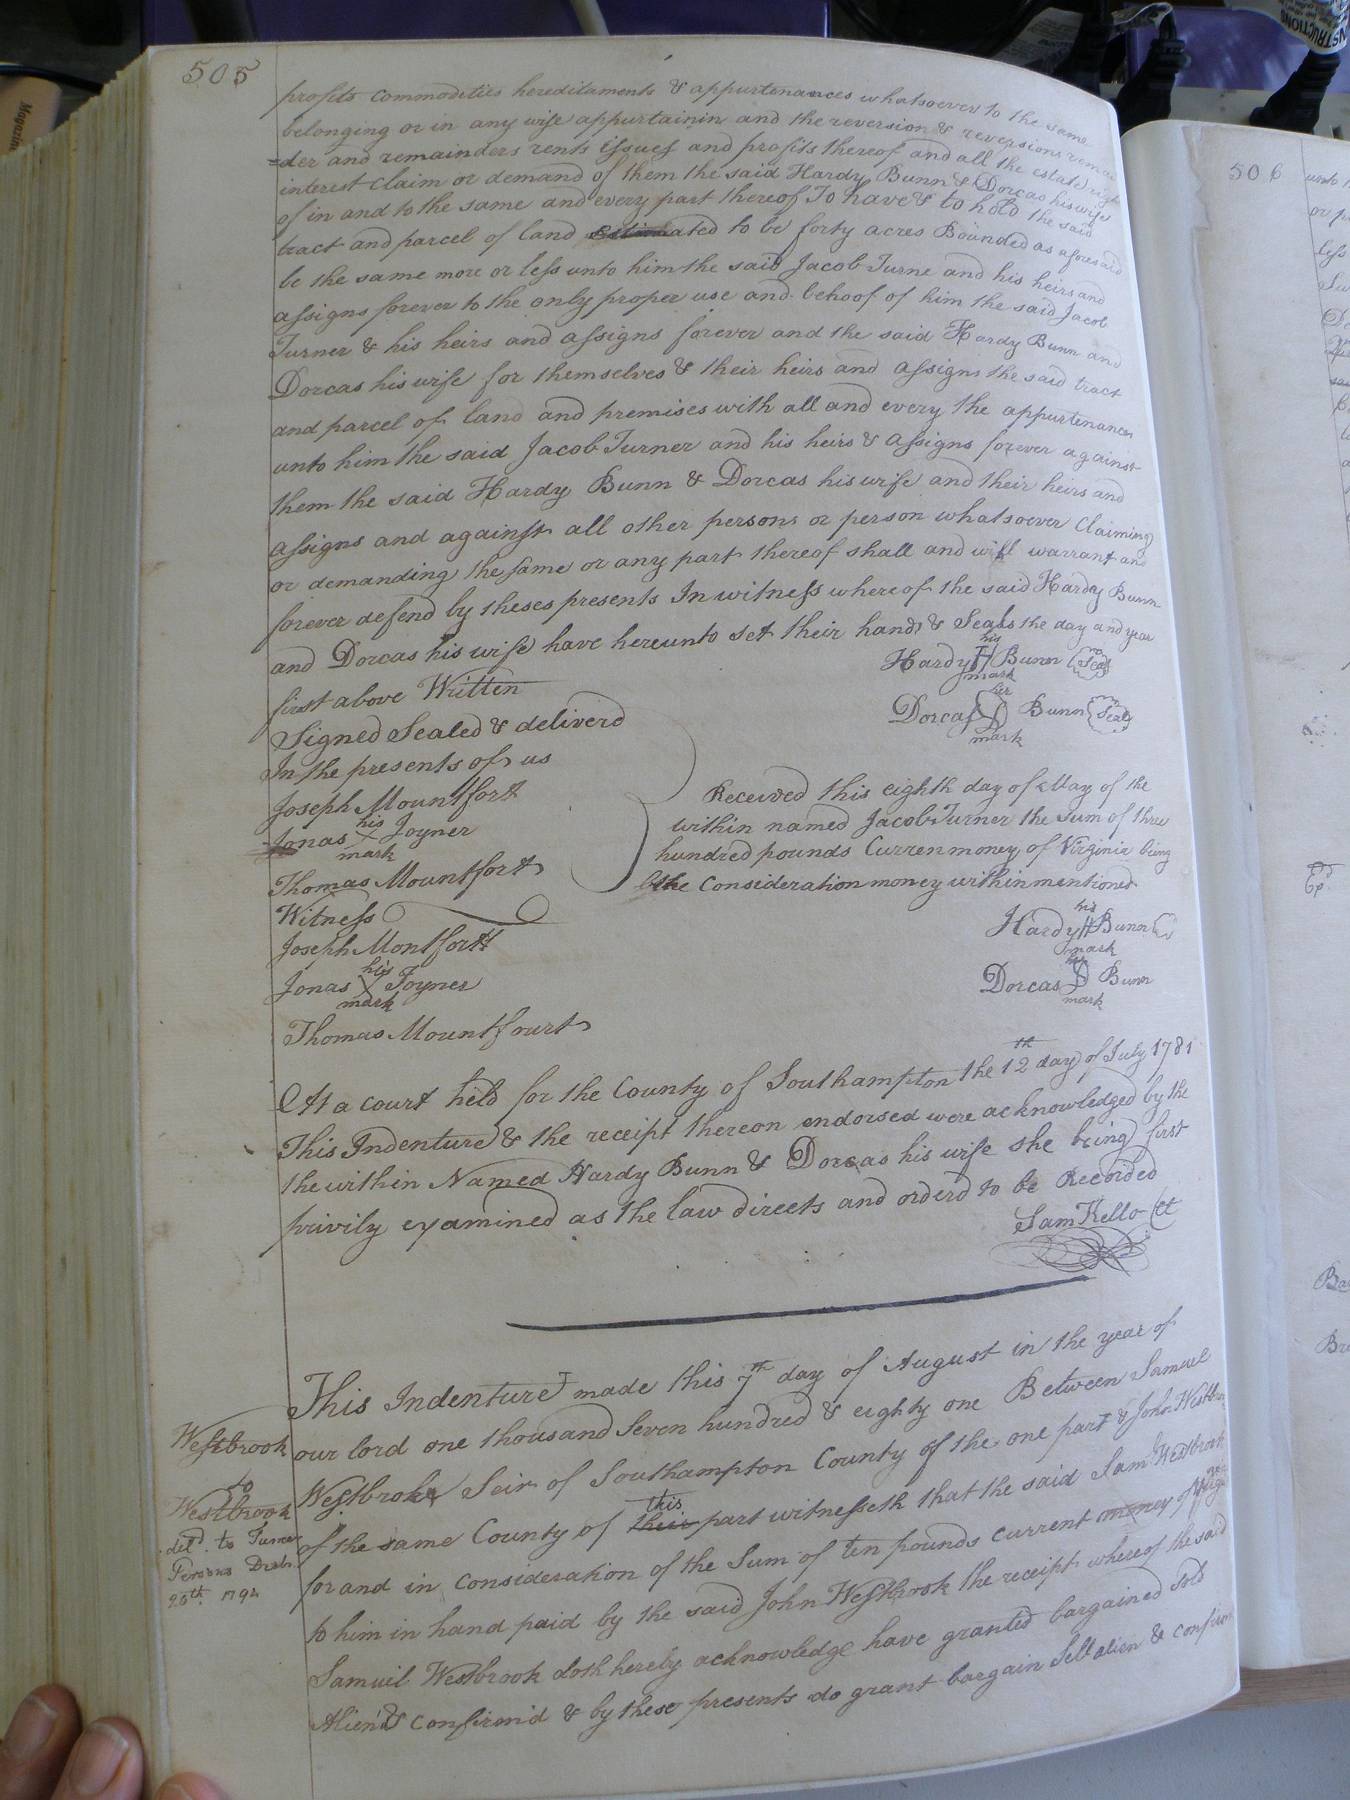 505
profits commodities hereditaments & appurtenances whatsoever to the same
belonging or in any wise appurtainin and the reversion & reversions remain
=der and remainders rents issues and profits thereof and all the estate right
interest claim or demand of them the said Hardy Bunn & Dorcas his wife
of in and to the same and every part thereof To have & to hold the said
tract and parcel of land estimated to be forty acres Bounded as aforesaid
be the same more or less unto him the said Jacob Turne and his heirs and
assigns forever to the only proper use and behoof of him the said Jacob
Turner & his heirs and assigns forever and the said Hardy Bunn and
Dorcas his wife for themselves & their heirs and assigns the said tract
and parcel of land and premises with all and every the appurtenances
unto him the said Jacob Turner and his heirs & assigns forever against
them the said Hardy Bunn & Dorcas his wife and their heirs and
assigns and against all other persons or person whatsoever claiming
or demanding the same or any part thereof shall and will warrant and
forever defend by theses presents In witness whereof the said Hardy Bunn
and Dorcas his wife have hereunto set their hands & Seals the day and year
first above Written
his
Hardy H Bunn Seal
mark
her
Dorcas D Bunn Seal
mark
Signed Sealed & deliverd
In the presents of us
Joseph Mountfort
his
Jonas X Joyner
mark
Thomas Mountfort
Received this eighth day of May of the
within named Jacob Turner the Sum of three
hundred pounds Curren money of Virginia being
the Consideration money within mentioned
Witness
Joseph Montfortt
his
Jonas X Joyner
mark
Thomas Mountfourt
his
Hardy H Bunn
mark
her
Dorcas D Bunn
mark
At a court held for the County of Southampton the 12th day of July 1781
This Indenture & the receipt thereon endorsed were acknowledged by the
the within Named Hardy Bunn & Dorcas his wife she being first
privily examined as the law directs and orderd to be Recorded
Sam Kello Ct
This Indenture made this 7th day of August in the year of
our lord one thousand Seven hundred & eighty one Between Samuel
Westbroke Seir of Southampton County of the one part & John Westbro
of the same County of their this part witnesseth that the said Sam Westbrook
for and in consideration of the Sum of ten pounds current money of Virga
to him in hand paid by the said John Westbrook the receipt whereof the said
Samuel Westbrook doth hereby acknowledge have granted bargained sold
Aliend & confirmd & by these presents do grant bargain Sell alien & confirm
Westbrook
to
Westbrook
deld. to Turner
Persons
20th. 1794
506
unto
less